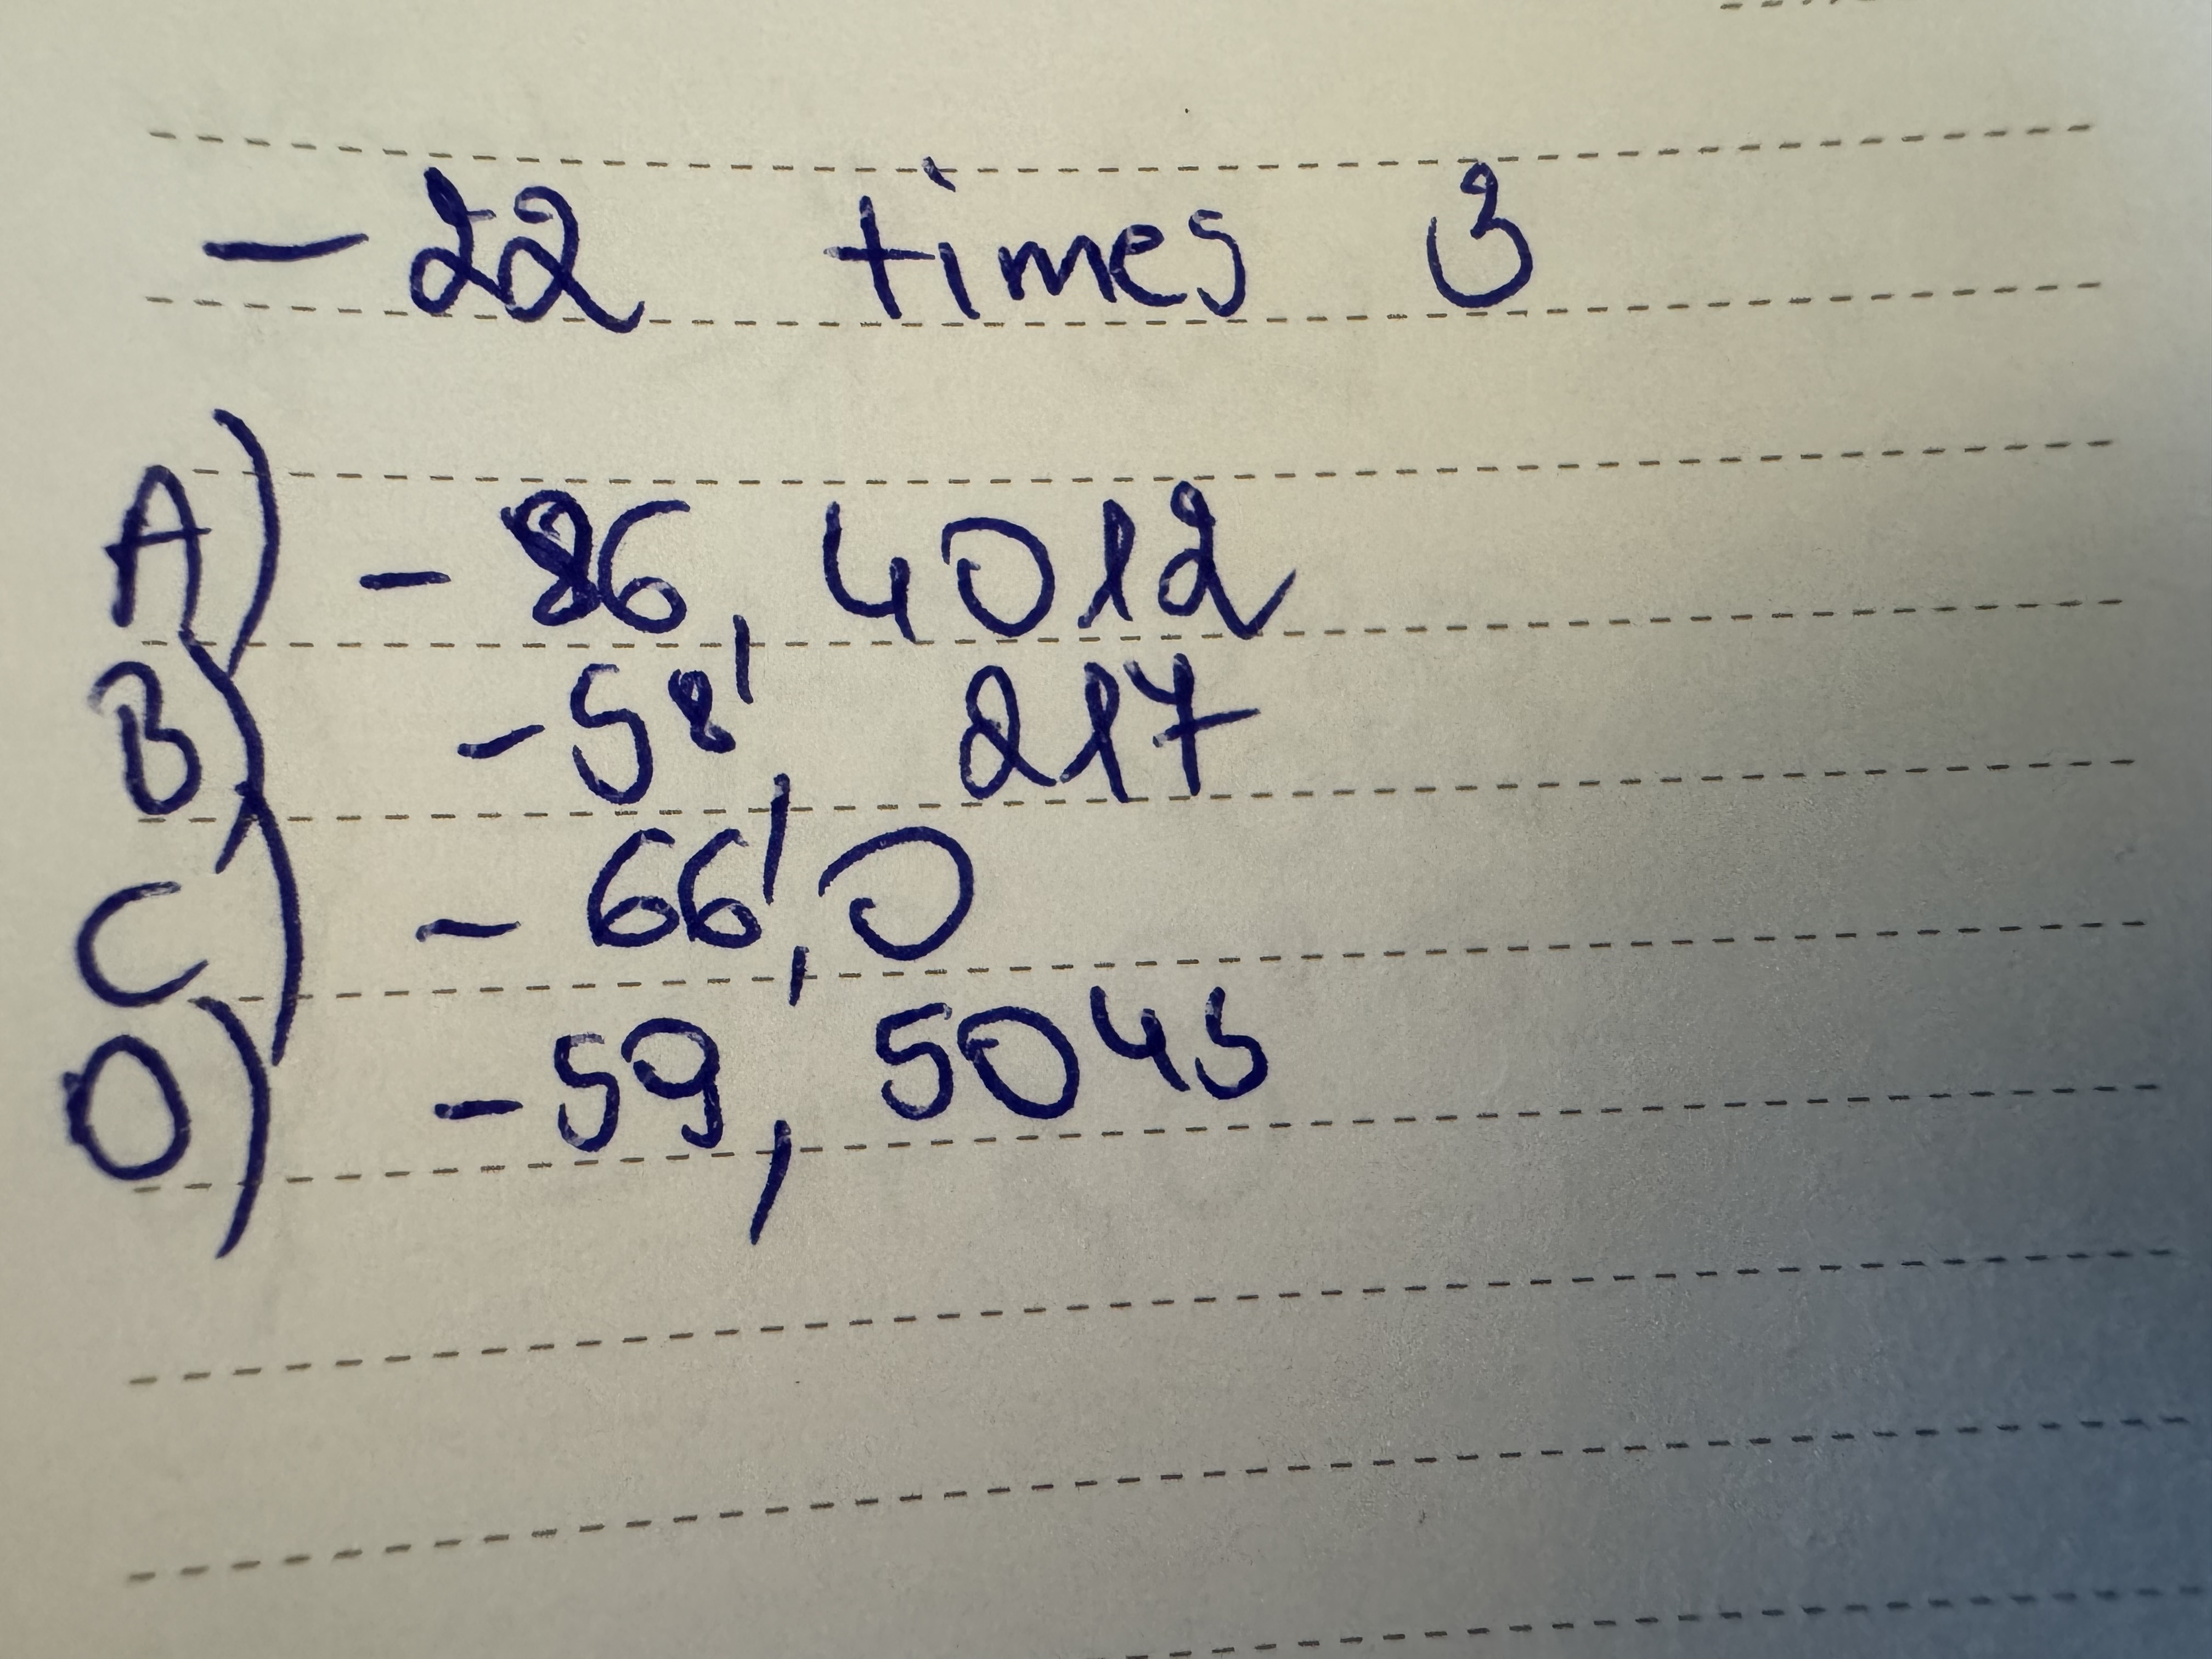 -22 times 3
A) -86,4012
B) -58, 217
C) -66,0
D) -59,5045